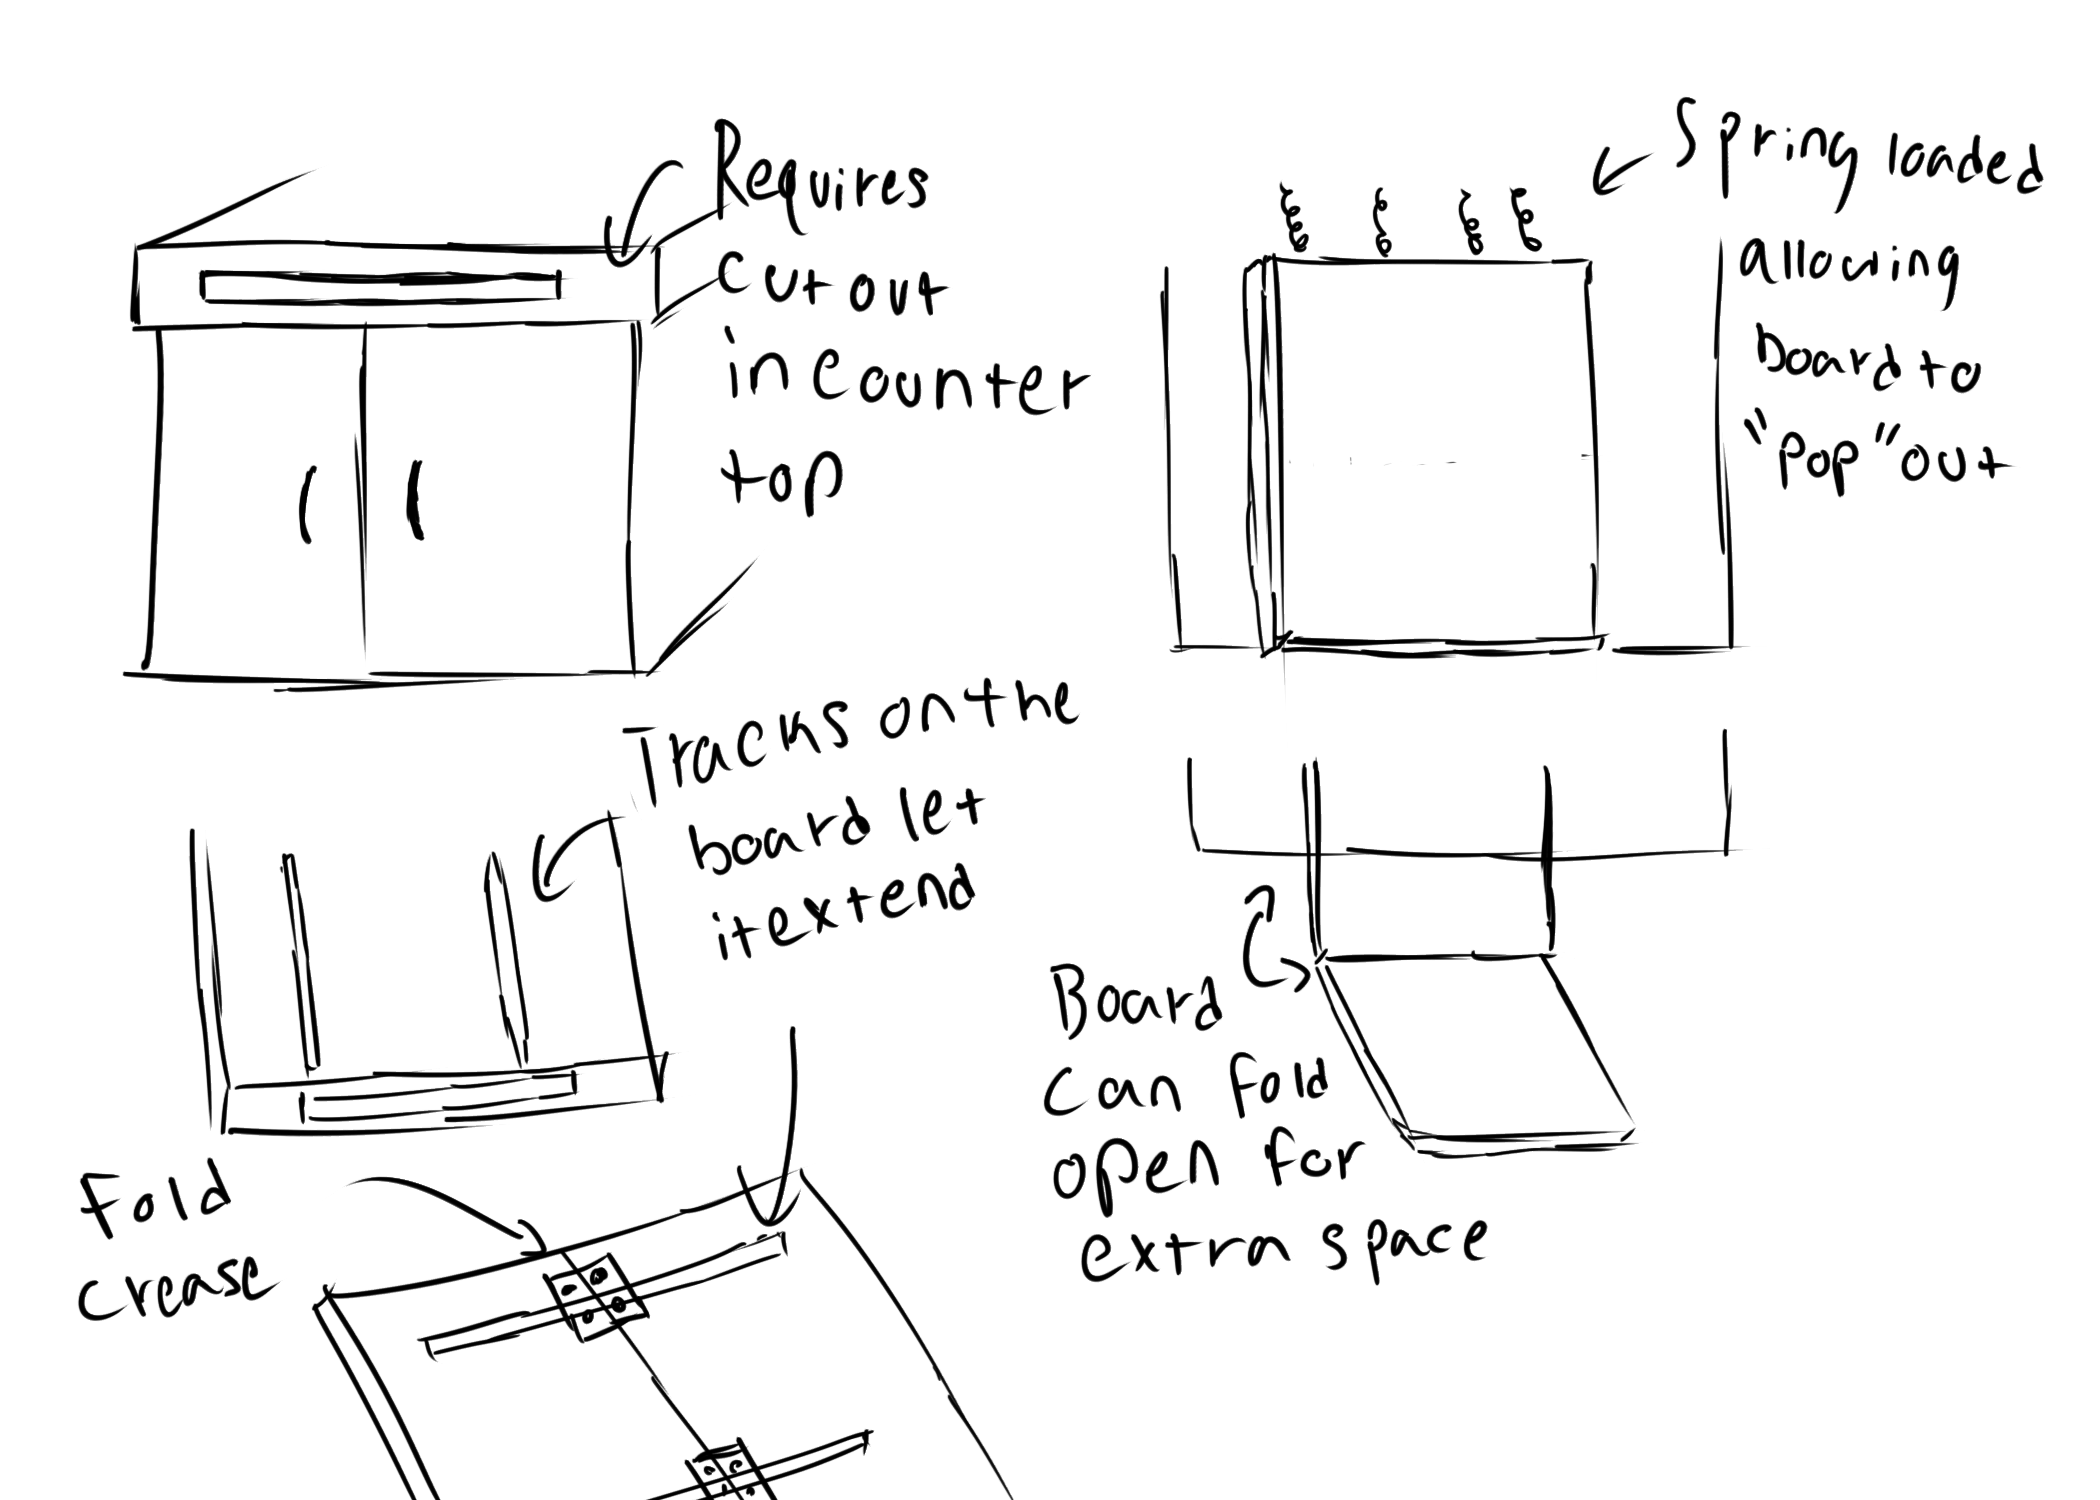 Requires
cut out
in counter
top
Spring loaded
allowing
board to
"Pop" out
Tracks on the
board let
it extend
Board
can fold
open for
extra space
Fold
crease